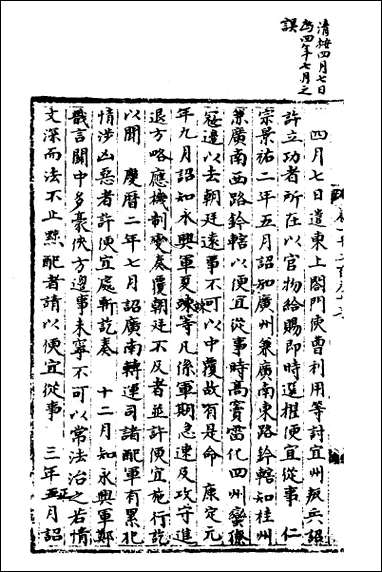 清按四月七日
為四年七月之
誤
四月七日遣東上閤門使曹利用等討宜州叛兵詔
許立功者所在以官物給賜即時遷擢便宜從事 仁
宗景祐二年五月詔知廣州兼廣南東路鈐轄知桂州
兼廣南西路鈐轄以便宜從事時高竇雷化四州蠻獠
寇邊以去朝廷遠事不可以中覆故有是命 康定元
年九月詔知永興軍夏竦等凡係軍期急速及攻守進
退方略應機制變奏覆朝廷不及者並許便宜施行訖
以聞 慶曆二年七月詔廣南轉運司諸配軍有累犯
情涉凶惡者許便宜處斬訖奏 十二月知永興軍鄭
戩言關中多豪俠方邊事未寧不可以常法治之若情
文深而法不止黥配者請以便宜從事 三年正月詔